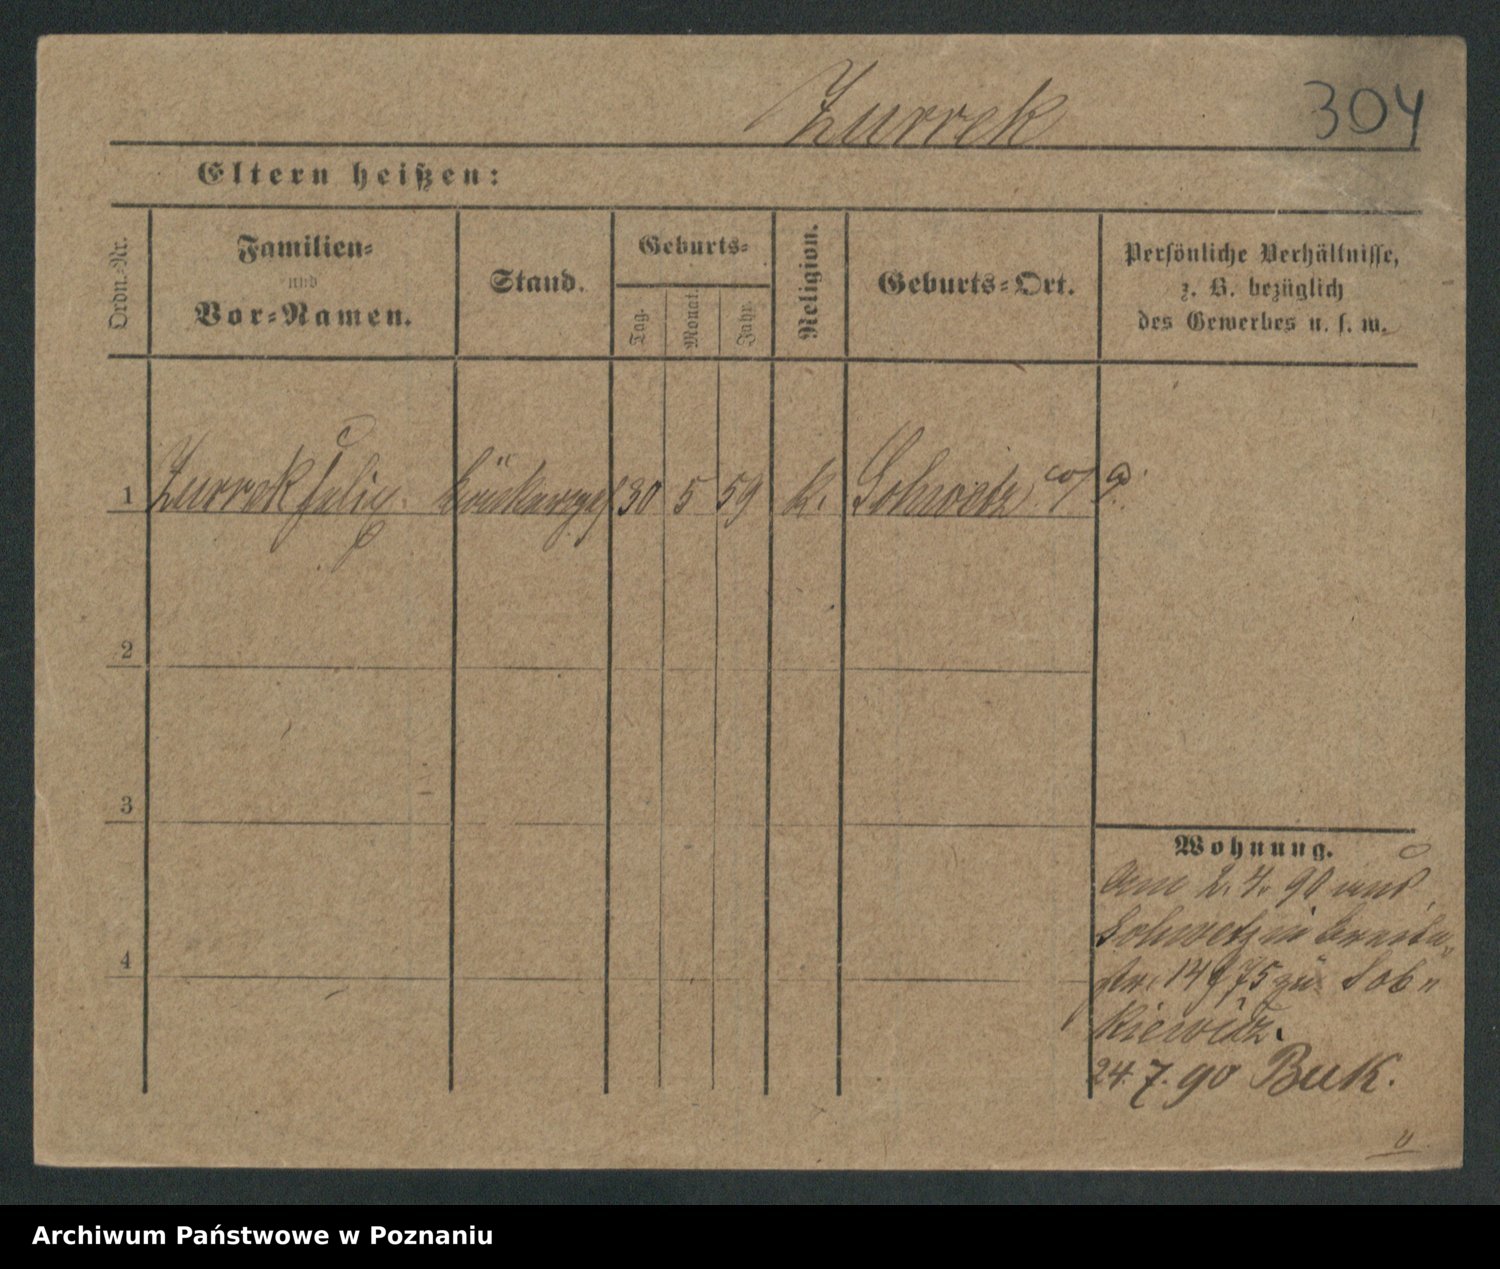 Zurrek
304
Eltern heißen:
Ordn.-Nr.
Familien-
und
Vor-Namen.
Stand.
Geburts-
Tag.
Monat.
Jahr.
Religion.
Geburts-Ort.
Persönliche Verhältnisse,
z. B. bezüglich
des Gewerbes u. s. w.
1 Zurrek Felix Bäckerges 30 5 59 k. Schwetz
2
3
4
Wohnung.
Am 2. 4. 90 aus
Schwetz in Breite-
str. 14 75 zu Sob-
kiewitz.
24. 7. 90 Buk.
Archiwum Państwowe w Poznaniu